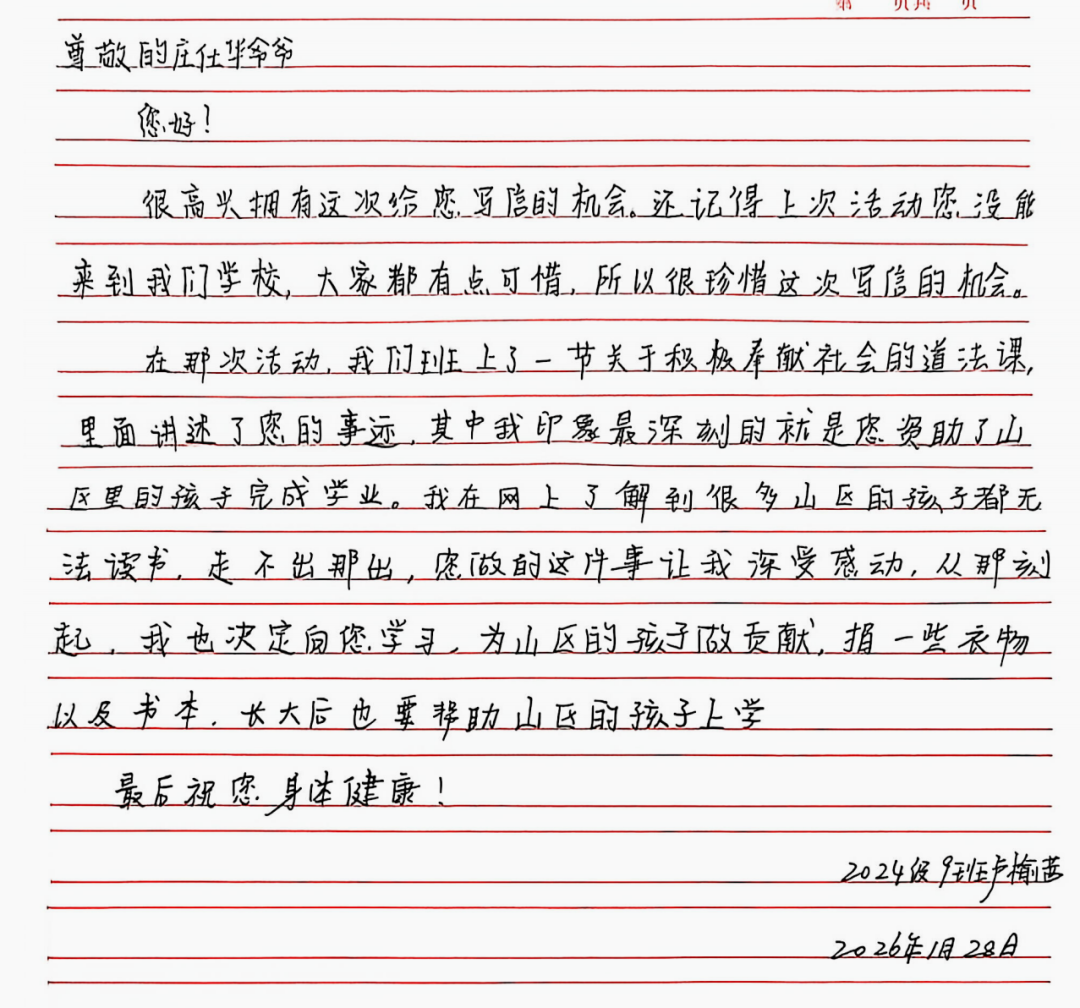 第 页共 页
尊敬的庄仕华爷爷
您好！
很高兴拥有这次给您写信的机会。还记得上次活动您没能
来到我们学校，大家都有点可惜，所以很珍惜这次写信的机会。
在那次活动，我们班上了一节关于积极奉献社会的道法课，
里面讲述了您的事迹，其中我印象最深刻的就是您资助了山
区里的孩子完成学业。我在网上了解到很多山区的孩子都无
法读书，走不出那出，您做的这件事让我深受感动，从那刻
起，我也决定向您学习，为山区的孩子做贡献，捐一些衣物
以及书本，长大后也要帮助山区的孩子上学
最后祝您身体健康！
2024级9班卢榆茜
2026年1月28日